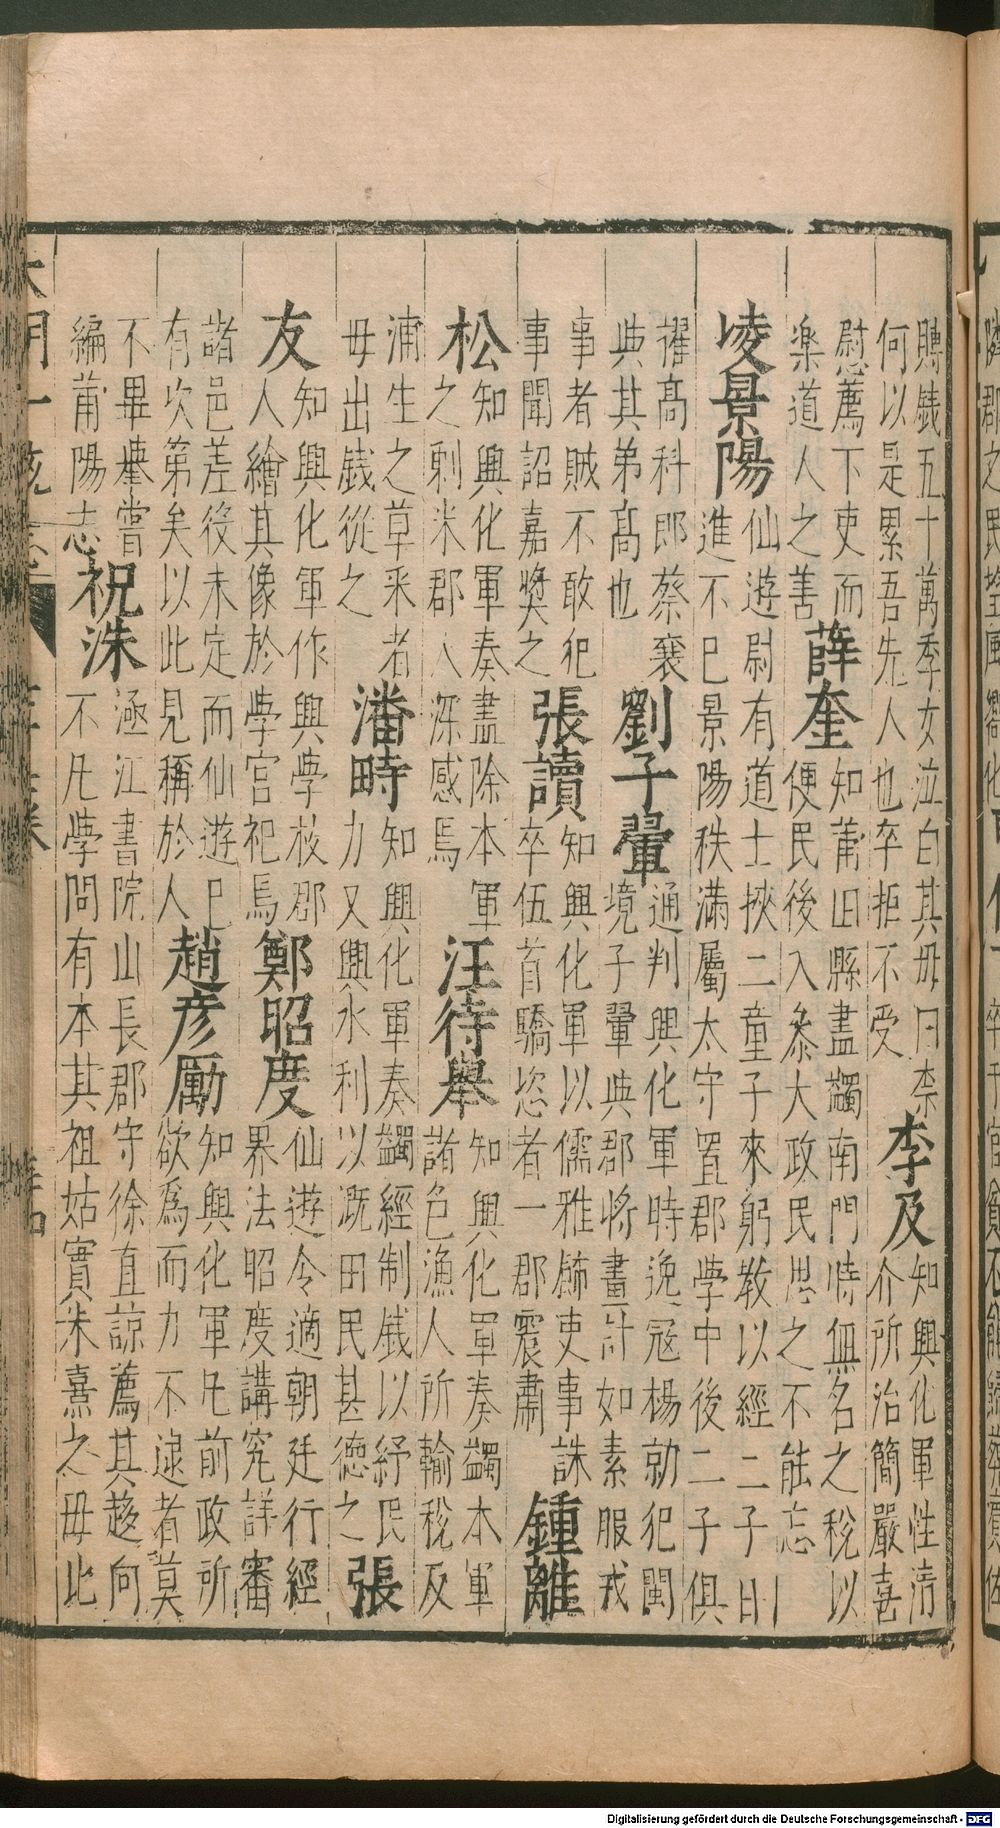 賻錢五十萬季女泣白其母曰柰
何以是累吾先人也卒拒不受
李及
知興化軍性清
介所治簡嚴喜
慰薦下吏而
樂道人之善
薛奎
知莆田縣盡蠲南門時無名之稅以
便民後入叅大政民思之不能忘
凌景陽
仙遊尉有道士挾二童子來躬教以經二子日
進不已景陽秩滿屬太守置郡學中後二子俱
擢高科郎蔡襄
典其弟高也
劉子翬
通判興化軍時逸冦楊勍犯閩
境子翬典郡將畫計如素服戎
事者賊不敢犯
事聞詔嘉奬之
張讀
知興化軍以儒雅餙吏事誅
卒伍首驕恣者一郡震肅
鍾離
松
知興化軍奏盡除本軍
之剰米郡人深感焉
汪待舉
知興化軍奏蠲本軍
諸色漁人所輸稅及
浦生之草采者
毋出錢從之
潘畤
知興化軍奏蠲經制錢以紓民
力又興水利以溉田民甚德之
張
友
知興化軍作興學校郡
人繪其像於學宮祀焉
鄭昭度
仙遊令適朝廷行經
界法昭度講究詳審
諸邑差役未定而仙遊已
有次第矣以此見稱於人
趙彦厲
知興化軍凡前政所
欲爲而力不逮者莫
不畢舉嘗
編莆陽志
祝洙
涵江書院山長郡守徐直諒薦其趍向
不凡學問有本其祖姑實朱熹之母比
大明一
Digitalisierung gefördert durch die Deutsche Forschungsgemeinschaft - DFG